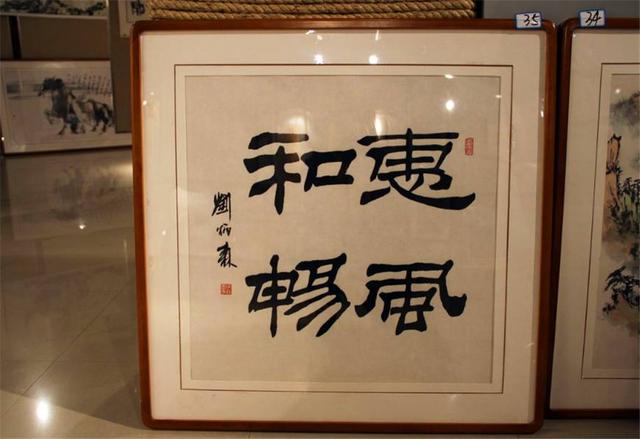 惠風
和暢
劉炳森
35
34